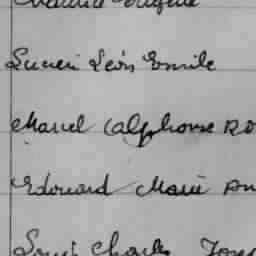 Lucien Léon Emile
Marcel (Alphonse RO
Edouard Marie
Louis Charles Jose